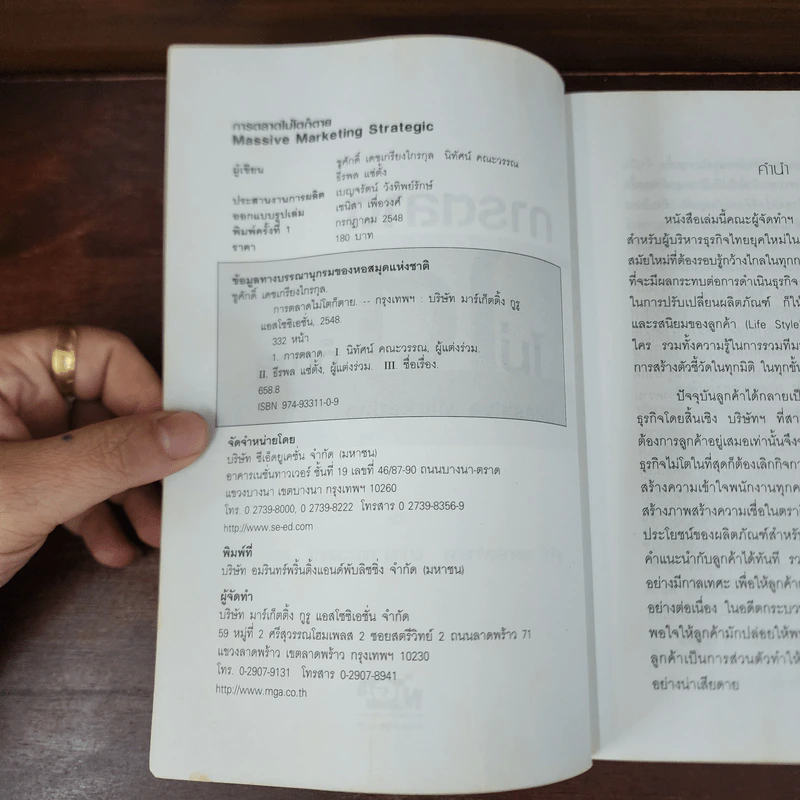 การตลาดไม่โตก็ตาย
Massive Marketing Strategic
ผู้เขียน
ชูศักดิ์ เดชเกรียงไกรกุล นิทัศน์ คณะวรรณ
ธีรพล แซ่ตั้ง
ประสานงานการผลิต
เบญจรัตน์ วังทิพย์รักษ์
ออกแบบรูปเล่ม
เชนิสา เพื่อวงศ์
พิมพ์ครั้งที่ 1
กรกฎาคม 2548
ราคา
180 บาท
ข้อมูลทางบรรณานุกรมของหอสมุดแห่งชาติ
ชูศักดิ์ เดชเกรียงไกรกุล.
การตลาดไม่โตก็ตาย. -- กรุงเทพฯ : บริษัท มาร์เก็ตติ้ง กูรู
แอสโซซิเอชั่น, 2548.
332 หน้า
1. การตลาด. I นิทัศน์ คณะวรรณ, ผู้แต่งร่วม.
II. ธีรพล แซ่ตั้ง, ผู้แต่งร่วม. III ชื่อเรื่อง.
658.8
ISBN 974-93311-0-9
จัดจำหน่ายโดย
บริษัท ซีเอ็ดยูเคชั่น จำกัด (มหาชน)
อาคารเนชั่นทาวเวอร์ ชั้นที่ 19 เลขที่ 46/87-90 ถนนบางนา-ตราด
แขวงบางนา เขตบางนา กรุงเทพฯ 10260
โทร. 0 2739-8000, 0 2739-8222 โทรสาร 0 2739-8356-9
http://www.se-ed.com
พิมพ์ที่
บริษัท อมรินทร์พริ้นติ้งแอนด์พับลิชชิ่ง จำกัด (มหาชน)
ผู้จัดทำ
บริษัท มาร์เก็ตติ้ง กูรู แอสโซซิเอชั่น จำกัด
59 หมู่ที่ 2 ศรีสุวรรณโฮมเพลส 2 ซอยสตรีวิทย์ 2 ถนนลาดพร้าว 71
แขวงลาดพร้าว เขตลาดพร้าว กรุงเทพฯ 10230
โทร. 0-2907-9131 โทรสาร 0-2907-8941
http://www.mga.co.th
คำนำ
หนังสือเล่มนี้คณะผู้จัดทำฯ
สำหรับผู้บริหารธุรกิจไทยยุคใหม่ใน
สมัยใหม่ที่ต้องรอบรู้กว้างไกลในทุกก
ที่จะมีผลกระทบต่อการดำเนินธุรกิจ
ในการปรับเปลี่ยนผลิตภัณฑ์ ก็ใน
และรสนิยมของลูกค้า (Life Style)
ใคร รวมทั้งความรู้ในการรวมทีม
การสร้างตัวชี้วัดในทุกมิติ ในทุกขั้น
ปัจจุบันลูกค้าได้กลายเป็
ธุรกิจโดยสิ้นเชิง บริษัทฯ ที่สา
ต้องการลูกค้าอยู่เสมอเท่านั้นจึง
ธุรกิจไม่โตในที่สุดก็ต้องเลิกกิจกา
สร้างความเข้าใจพนักงานทุกค
สร้างภาพสร้างความเชื่อในตราใ
ประโยชน์ของผลิตภัณฑ์สำหรับ
คำแนะนำกับลูกค้าได้ทันที รว
อย่างมีกาลเทศะ เพื่อให้ลูกค้า
อย่างต่อเนื่อง ในอดีตกระบว
พอใจให้ลูกค้ามักปล่อยให้พ
ลูกค้าเป็นการส่วนตัวทำให้
อย่างน่าเสียดาย